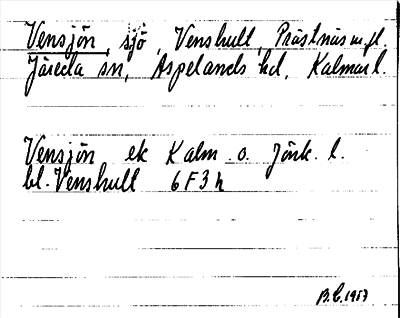 Vensjön, sjö, Venshult, Prästnäs m.fl.
Järeda sn, Aspelands hd, Kalmar l.
Vensjön ek Kalm. o. Jönk. l.
bl. Venshult 6F3h
B.E. 1957